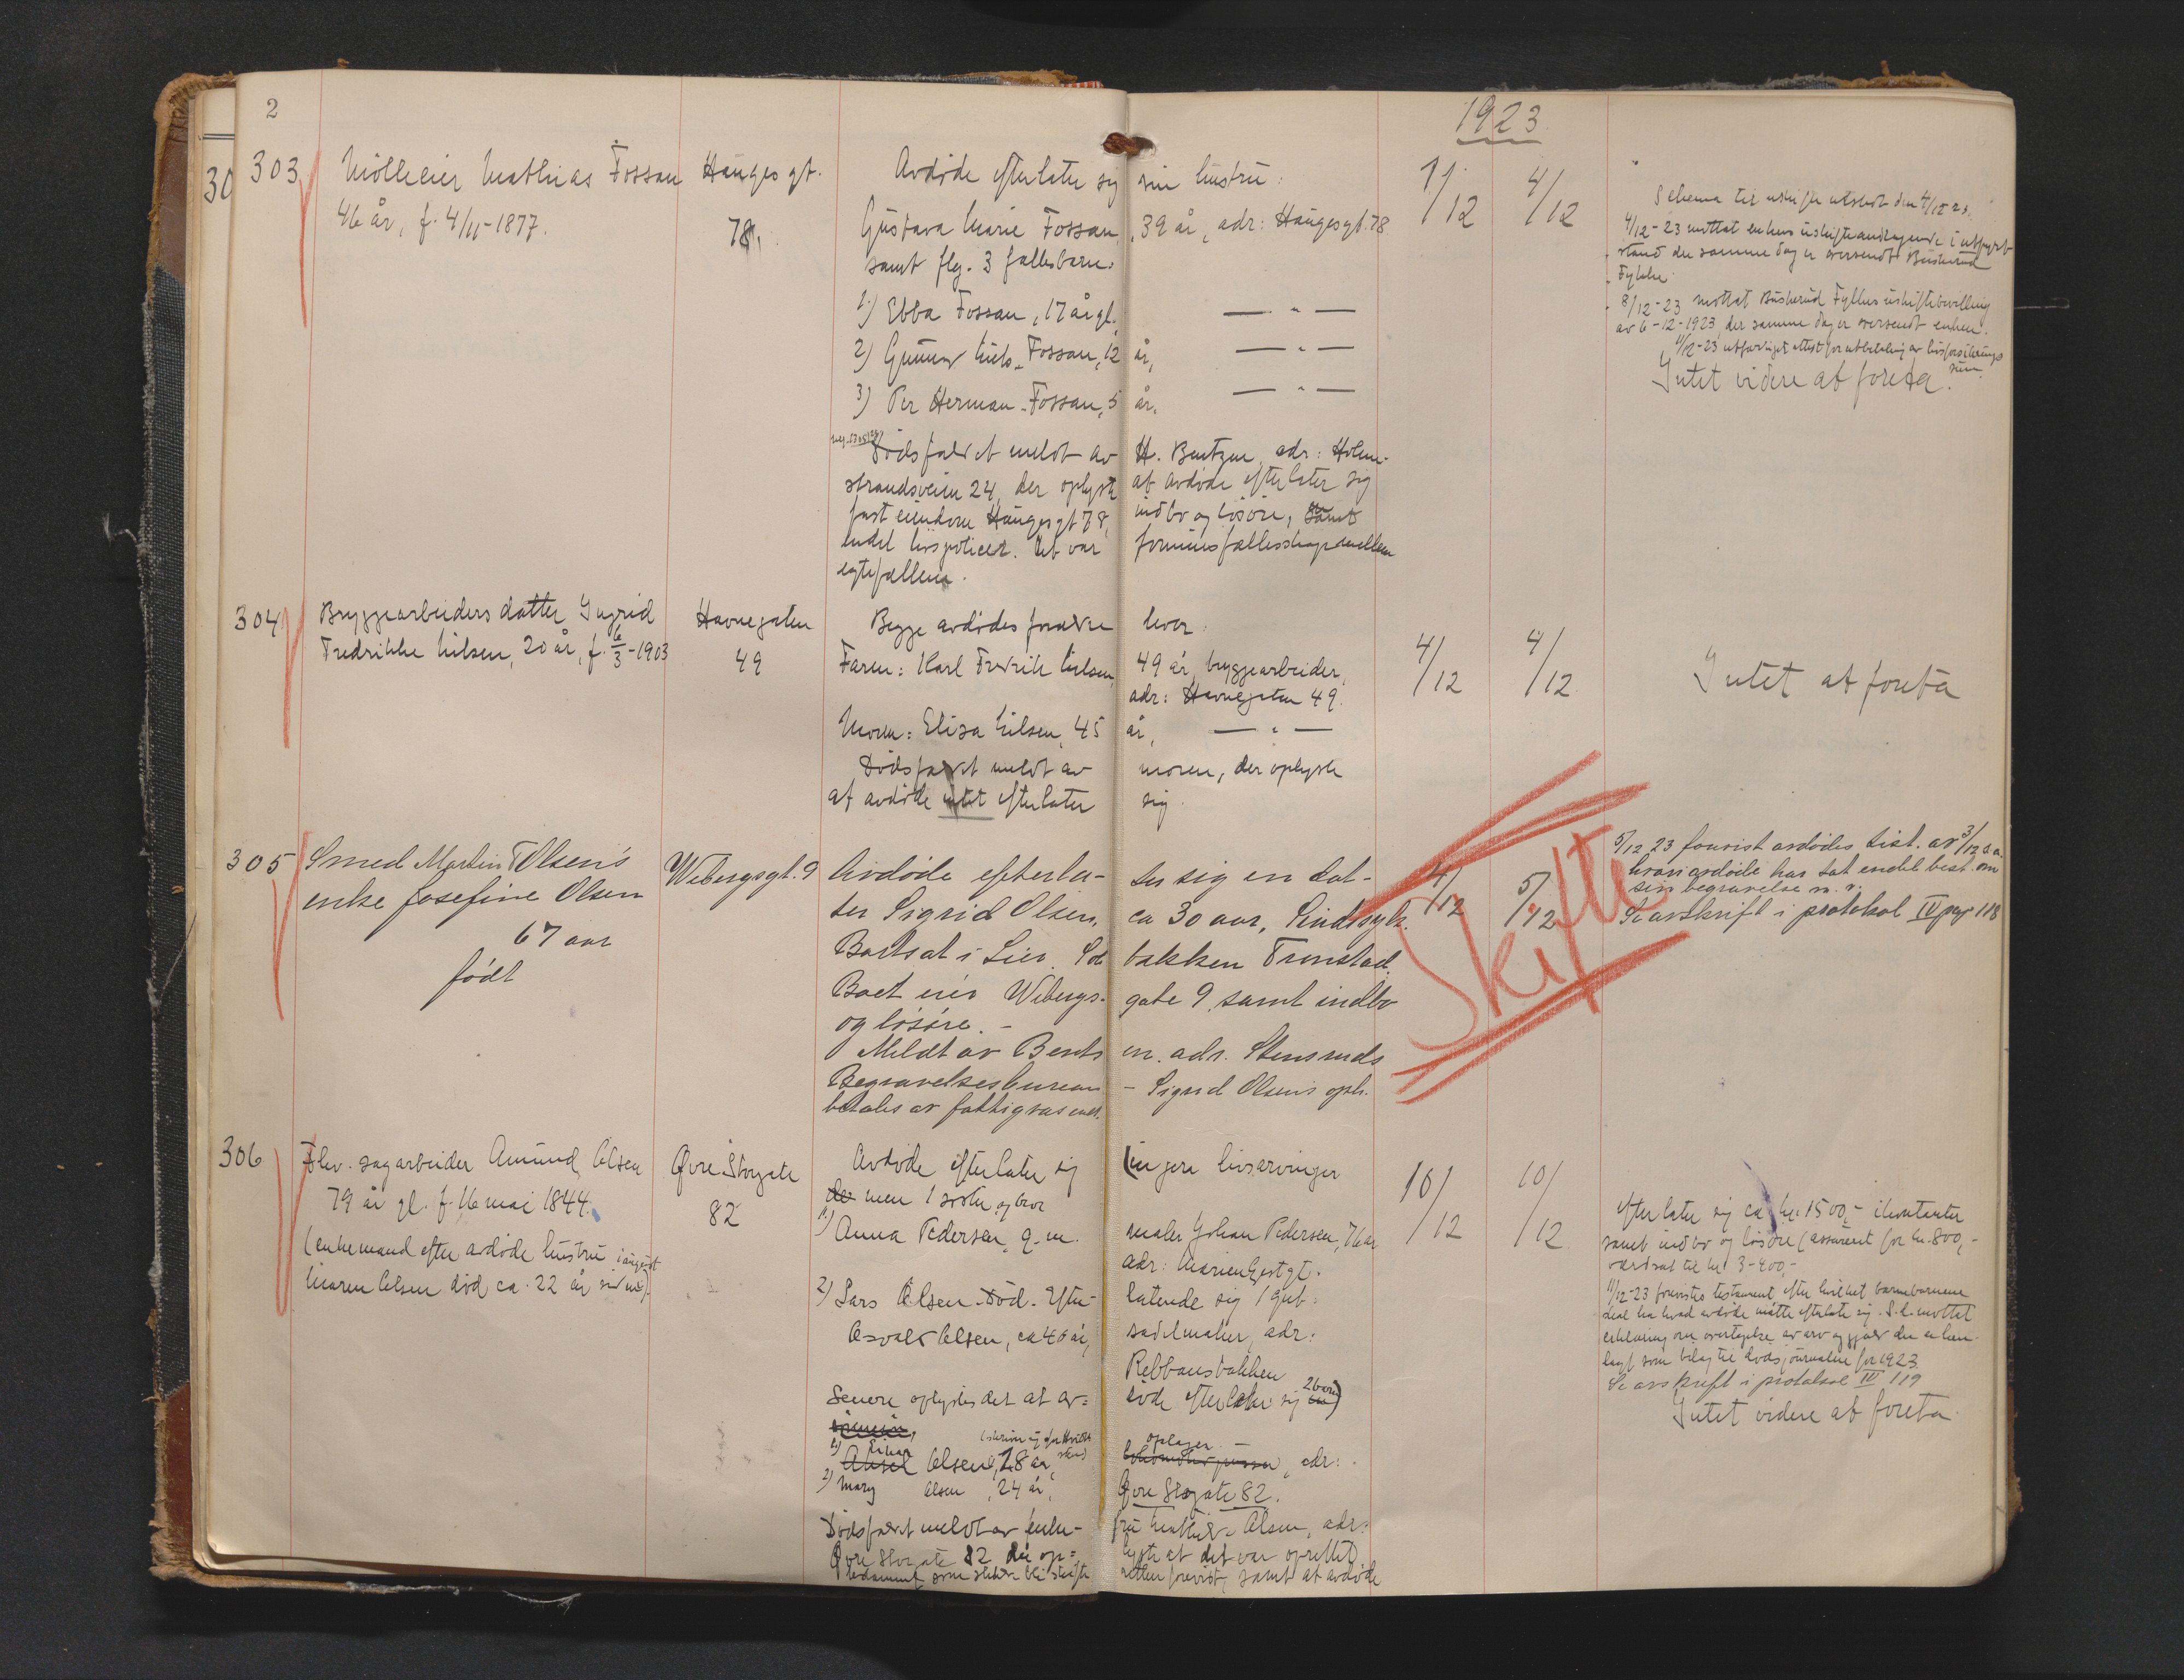 2
1923
30
303
Mölleeier Mathias Fossan
46 år, f. 4/11-1877.
Hauges gt.
78.
Avdöde efterlater sig sin hustru:
Gustava Marie Fossan, 39 år, adr: Haugesgt. 78
samt flg. 3 fællesbarn:
1) Ebba Fossan, 17 år gl. — " —
2) Gunnar Fossan, 12 år, — " —
3) Per Herman Fossan, 5 år, — " —
Dödsfaldet meldt av H. Bentzen, adr: Holm-
strandsveien 24, der oplyste at avdöde efterlater sig
fast eiendom Haugesgt 78, indbo og lösöre, samt
endel livspolicer. Det var formuesfællesskap mellem
egtefællene.
11/12
4/12
Schema til uskifte utsendt den 4/12 23.
4/12-23 mottat enkens uskifteandragende i utfyldt
stand der samme dag er oversendt Buskerud
Fylke.
8/12-23 mottat Buskerud Fylkes uskiftebevilling
av 6-12-1923, der samme dag er oversendt enken.
11/12-23 utfærdiget attest for utbetaling av livsforsikrings
sum.
Intet videre at foreta.
304
Bryggearbeiders datter Ingrid
Fredrikke Nilsen, 20 år, f. 6/3-1903
Havnegaten
49
Begge avdödes forældre lever:
Faren: Karl Fredrik Nilsen, 49 år, bryggearbeider,
adr: Havnegaten 49.
Moren: Elisa Nilsen, 45 år, — " —
Dödsfaldet meldt av moren, der oplyste
at avdöde intet efterlater sig.
4/12
4/12
Intet at foreta
305
Smed Martin Olsen's
enke Josefine Olsen
67 aar
født
Wibergsgt. 9
Avdøde efterla-
ter sig en dat-
ter Sigrid Olsen, ca 30 aar, Sindssyk.
Bortsat i Lier. Sol bakken Transtad.
Boet eier Wibergs- gate 9, samt indbo
og løsøre. -
Meldt av Bents en. adr. Stensruds
Begravelsesbureau - Sigrid Olsens oph.
betales av fattigvæsenet.
4/12
5/12
Skifte
5/12 23 forevist avdødes dist. av 3/12 d.a.
hvori avdøde har tat endel best. om
sin begravelse m.v.
Se avskrift i protokol IV pag 118
306
Fhv. sagarbeider Amund Olsen
79 år gl. f. 16 mai 1844.
(enkemand efter avdöde hustru
Maren Olsen död ca. 22 år siden).
Øvre Storgate
82
Avdöde efterlater sig ingen livsarvinger
men 1 söster og bror
1) Anna Pedersen, g.m. maler Johan Pedersen, 76 år
adr: Marienlystgt.
2) Lars Olsen - död. Efter- latende sig 1 gut:
Osvald Olsen, ca 40 år, sadelmaker, adr:
Rebbansbakken
Senere oplystes det at av- döde efterlater sig 2 barn
1) Einar Olsen, 28 år, oplager, adr:
2) Mary Olsen, 24 år, Øvre Storgate 82.
Dödsfaldet meldt av fru Olsen, adr:
Øvre Storgate 82 der op- lyste at det var oprettet
testament som skulde bli skifte retten forevist, samt at avdöde
10/12
10/12
efterlater sig ca kr. 1500,- i kontanter
samt indbo og lösöre (assurert for kr. 800,-
værdsat til kr. 3-400,-
11/12-23 forevistes testament efter hvilket barnebarnene
skal ha hvad avdöde måtte efterlate sig. S.d. mottat
erklæring om overtagelse av arv og gjæld der er hen-
lagt som bilag til dödsjournalen for 1923.
Se avskrift i protokol IV 119
Intet videre at foreta